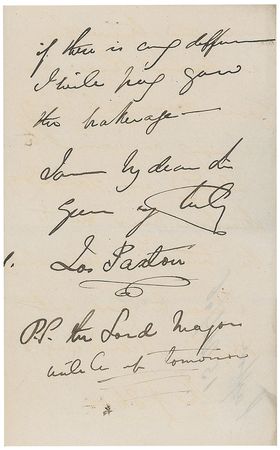 if there is any differ
I will pay you
the brokerage
I am My dear Sir
Yours very truly
Jos Paxton
P.S. the Lord Mayor
will be at tomorrow